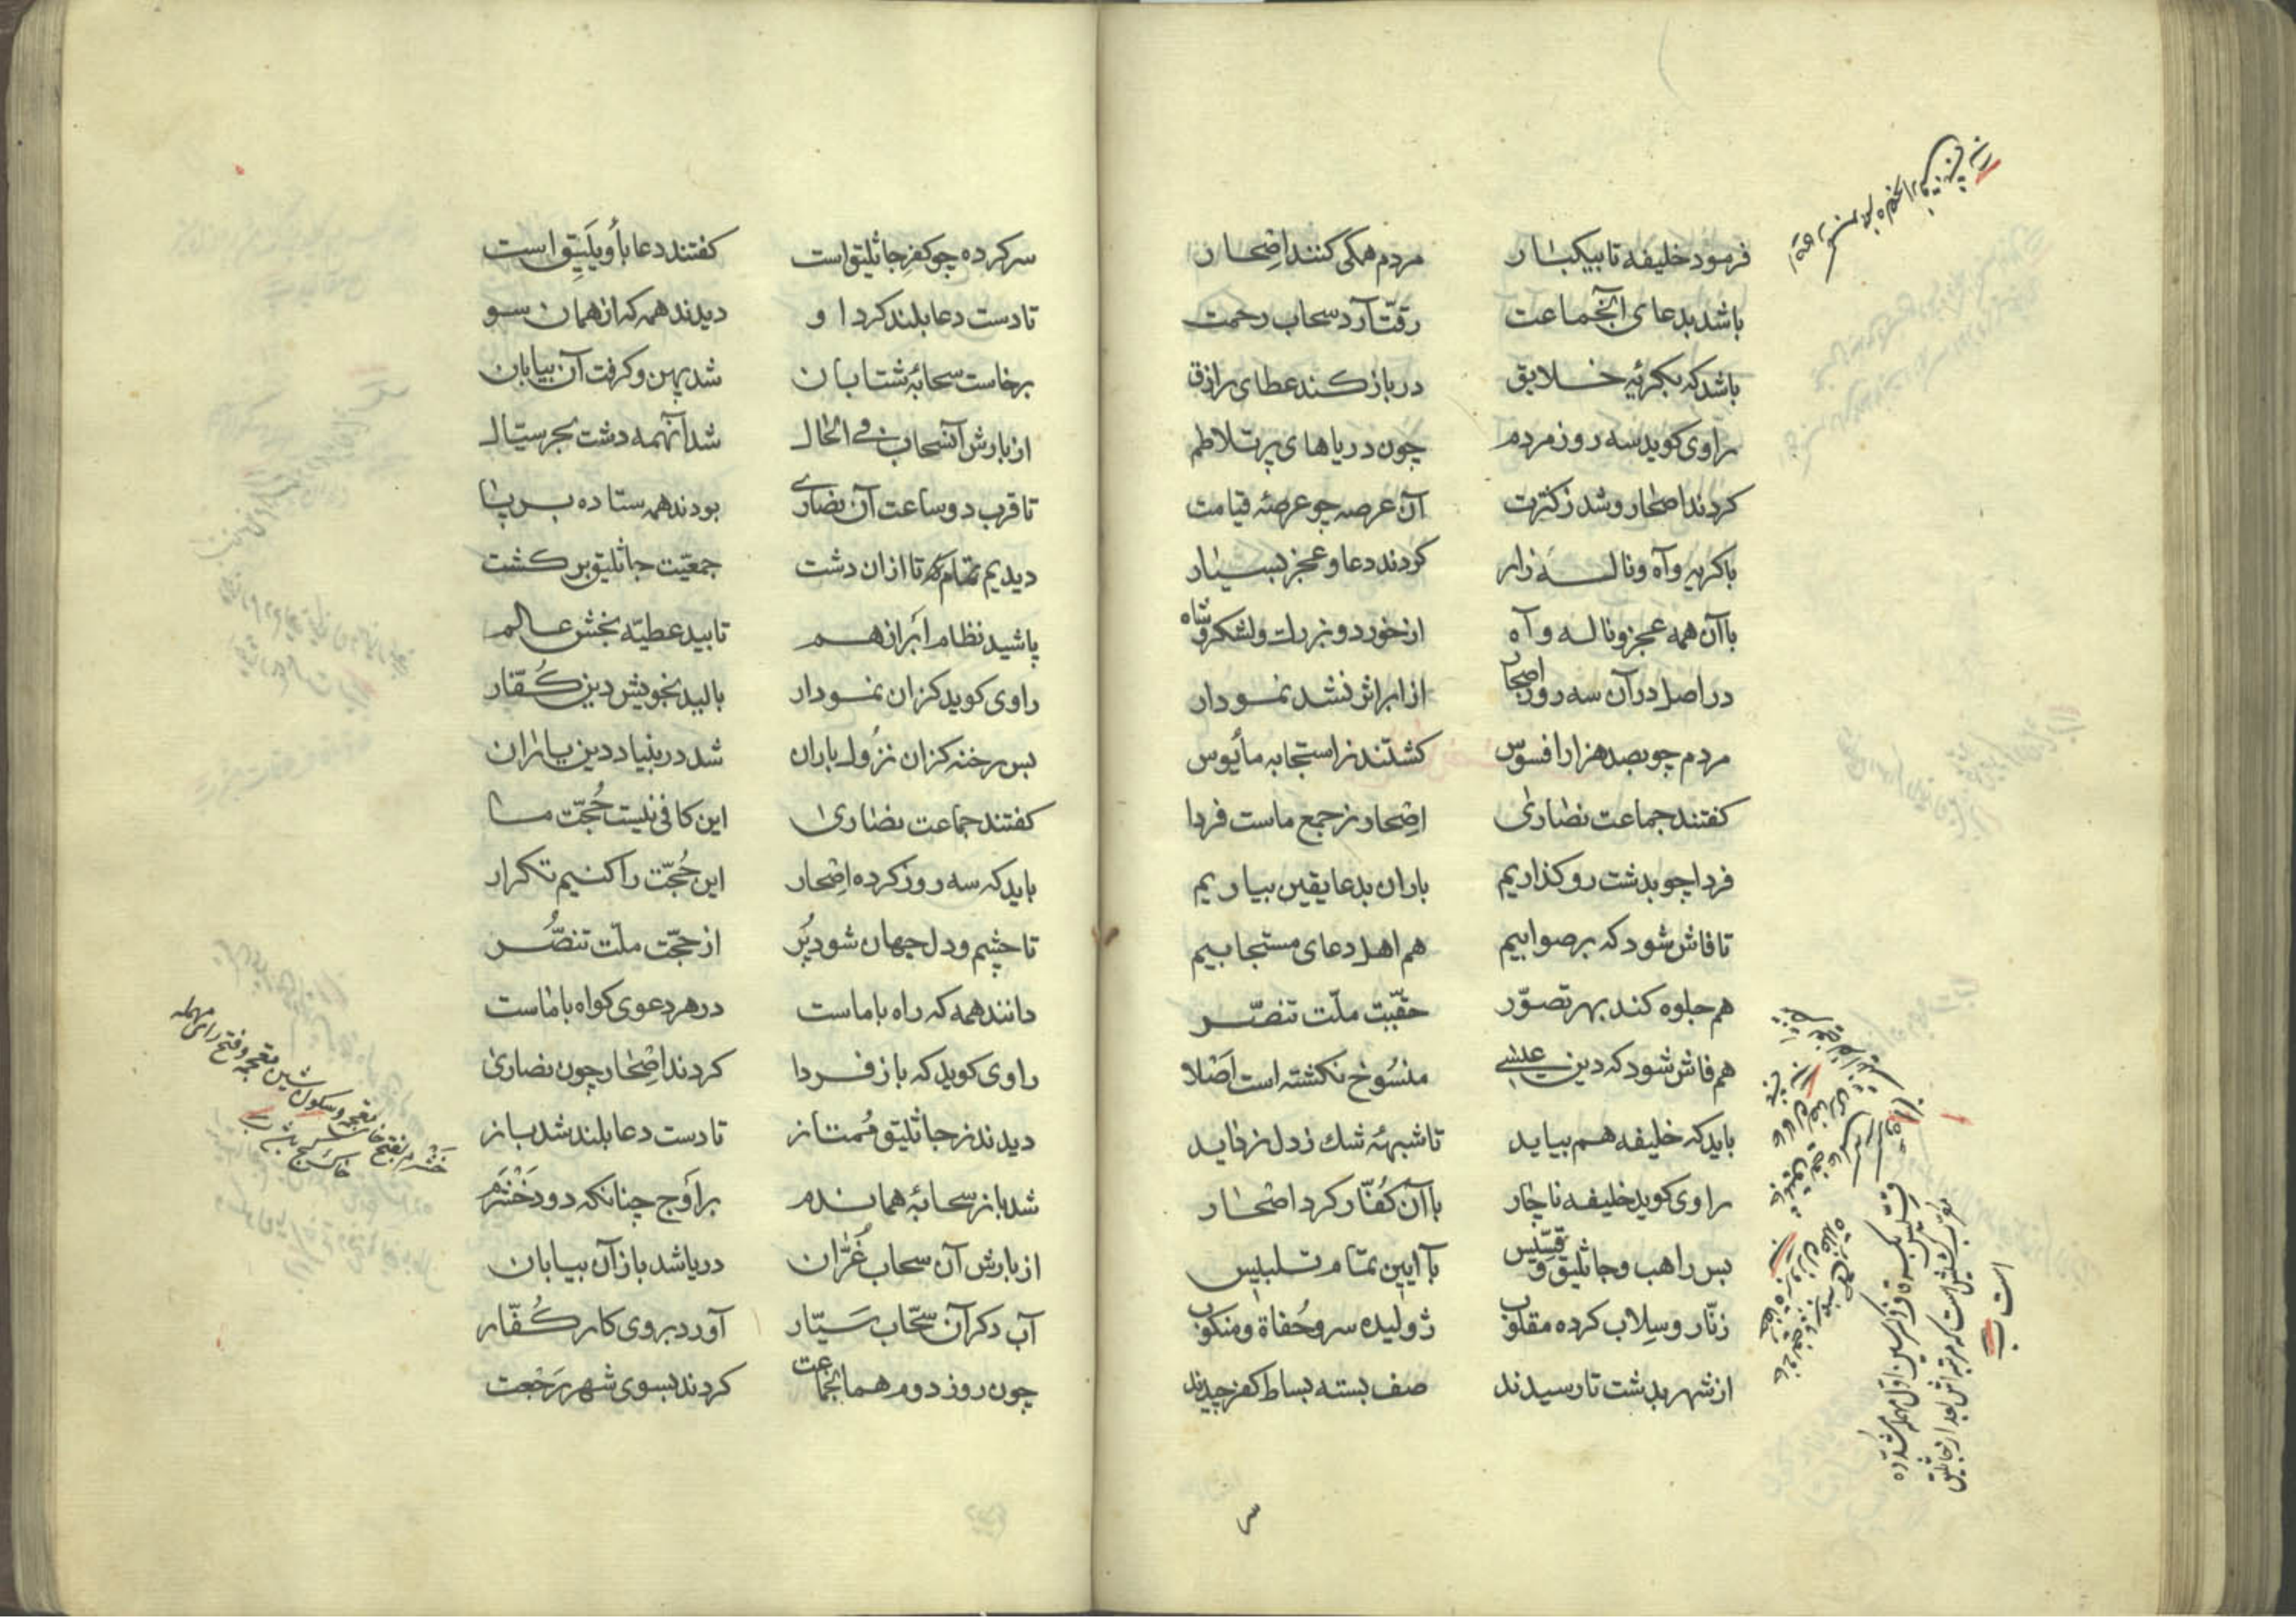 فرمود خلیفه تا بیکبار مردم همگی کنند اضحار
باشد بدعای آنجماعت رقّت آرد سحاب رحمت
باشد که بکریهٔ خلایق در باز کند عطای رازق
راوی کوید سه روز مردم چون دریاهای پر تلاطم
کردند اضحار و شد ز کثرت آن عرصه چو عرصهٔ قیامت
با کریه و آه و ناله زار کردند دعا و عجز بسیار
با آن همه عجز و ناله و آه از خورد و بزرك و لشکر و شاه
در اصل در آن سه روز اضحار از ابر اثر نشد نمودار
مردم چو بصد هزار افسوس کشتند ز استجابه مأیوس
کفتند جماعت نصاری اضحار ز جمع ماست فردا
فردا چو بدشت رو کذاریم باران بدعا یقین بیاریم
تا فاش شود که بر صوابیم هم اهل دعای مستجابیم
هم جلوه کند بهر تصوّر حقیّت ملّت تنصّر
هم فاش شود که دین عیسی منسُوخ نکشته است اصْلا
باید که خلیفه هم بیاید تا شبههٔ شك ز دل زداید
راوی کوید خلیفه ناچار با آن کُفّار کرد اضحار
بس راهب و جاثلیق و قسّیس با آیین تمام تلبیس
زنّار و سِلاب کرده مقلوب ژولیده سر و حُفاة و منکوب
از شهر بدشت تا رسیدند صف بسته بساط کفر چیدند
قِسّیس بکسر قاف و سین اوّل مهمله مشدّده
معرّب کشیش است که مرتبه اش بعد از جاثلیق
است
سرکرده چو کفر جاثلیق است کفتند دعا باو یلیق است
تا دست دعا بلند کرد او دیدند همه که از همان سو
برخاست سحابهٔ شتابان شد پهن و کرفت آن بیابان
از بارش آنسحاب فی الحال شد آنهمه دشت بحر سیّال
تا قرب دو ساعت آن نصاری بودند همه ستاده بر پا
دیدیم تمام که تا ازان دشت جمعیّت جاثلیق بر کشت
پاشید نظام ابر از هم تابید عطیّه بخش عالم
راوی کوید کزان نمودار بالید بخویش دین کُفّار
بس رخنه کزان نزُول باران شد در بنیاد دین یاران
کفتند جماعت نصاری این کافی نیست حُجّت ما
باید که سه روز کرده اضحار این حُجّت را کنیم تکرار
تا چشم و دل جهان شود پُر از حجّت ملّت تنصُّر
دانند همه که راه با ماست در هر دعوی کواه با ماست
راوی کوید که باز فردا کردند اضحار چون نصاری
دیدند ز جاثلیق مُمتاز تا دست دعا بلند شد باز
شد باز سحابهٔ هماندم بر اوج چنانکه دود خَشْرَم
از بارش آن سحاب غُرّان دریا شد باز آن بیابان
آب دکر آن سحّاب سَیّار آورد بروی کار کُفّار
چون روز دوم همان جماعت کردند بسوی شهر رَجْعت
خَشْرم بفتح خاء معجمه و سکون شین معجمه و فتح رای مهمله